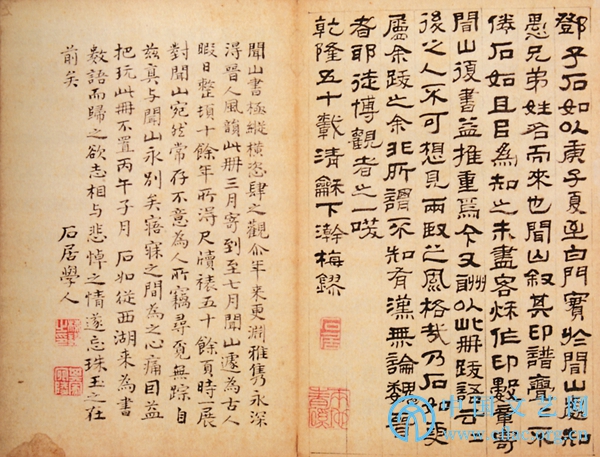 鄧子石如以庚子夏至白門實於聞山處知
愚兄弟姓名而來也聞山敘其印譜不
倦石如且目為知之未盡客秋作印數章寄
聞山復書益推重焉今又酬以此冊跋語云云
後之人不可想見兩之風格哉乃石如更
屬余跋之余非所謂不知有漢無論魏晉
者耶徒博觀者之一咲
乾隆五十載清龢下澣梅鏐
聞山書極縱橫恣肆之觀尒年來更淵雅雋永深
得晉人風韻此冊三月寄到至七月聞山遽為古人
暇日整頓十餘年所得尺牘裱五十餘頁時展
對聞山宛然常存不意為人所竊尋覓無踪自
茲真与聞山永別矣寤寐之間為之心痛目益
把玩此冊不置丙午子月石如從西湖來為書
數語而歸之欲志相与悲悼之情遂忘珠玉之在
前矣
石居學人
中国文艺网
www.cflac.org.cn